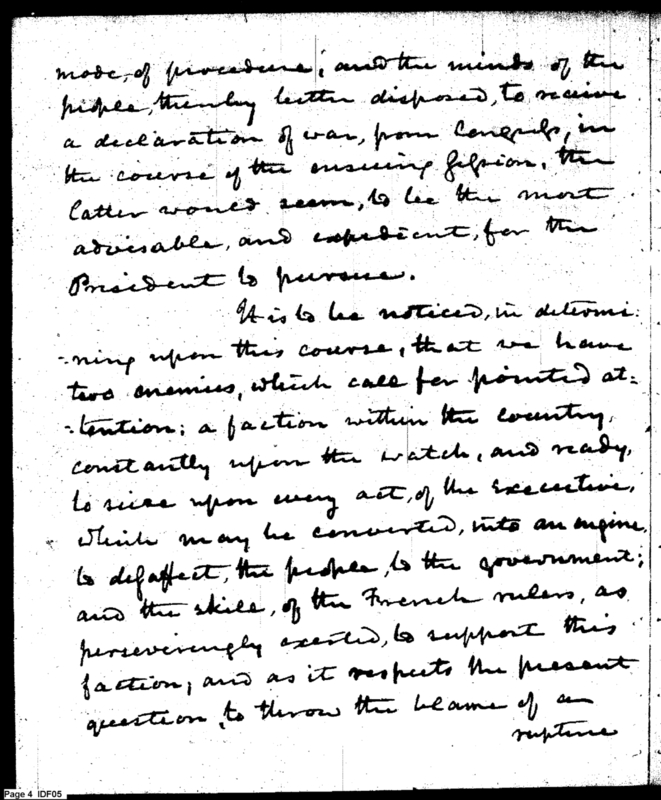 mode, of procedure; and the minds of the
people, thereby better disposed, to receive
a declaration of war, from Congress, in
the course of the ensuing Session, the
latter would seem, to be the most
advisable, and expedient, for the
President to pursue.
It is to be noticed, in determi:
:ning upon this course, that we have
two enemies, which call for pointed at:
:tention; a faction within the country,
constantly upon the watch, and ready,
to seize upon every act, of the executive,
which may be converted, into an engine,
to disaffect, the people, to the government;
and the skill, of the French rulers, as
perseveringly exerted, to support this
faction; and as it respects the present
question, to throw the blame of a
rupture
Page 4 IDF05